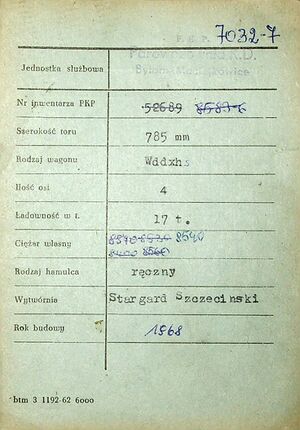 7032-7
P. K. P.
Parowozownia K.D.
Jednostka służbowa
Nr inwentarza PKP 52689 8583-6
Szerokość toru 785 mm
Rodzaj wagonu Wddxhs
Ilość osi 4
Ładowność w t. 17 t.
Ciężar własny 8540
Rodzaj hamulca ręczny
Wytwórnia Stargard Szczecinski
Rok budowy 1968
btm 3 1192-62 6000